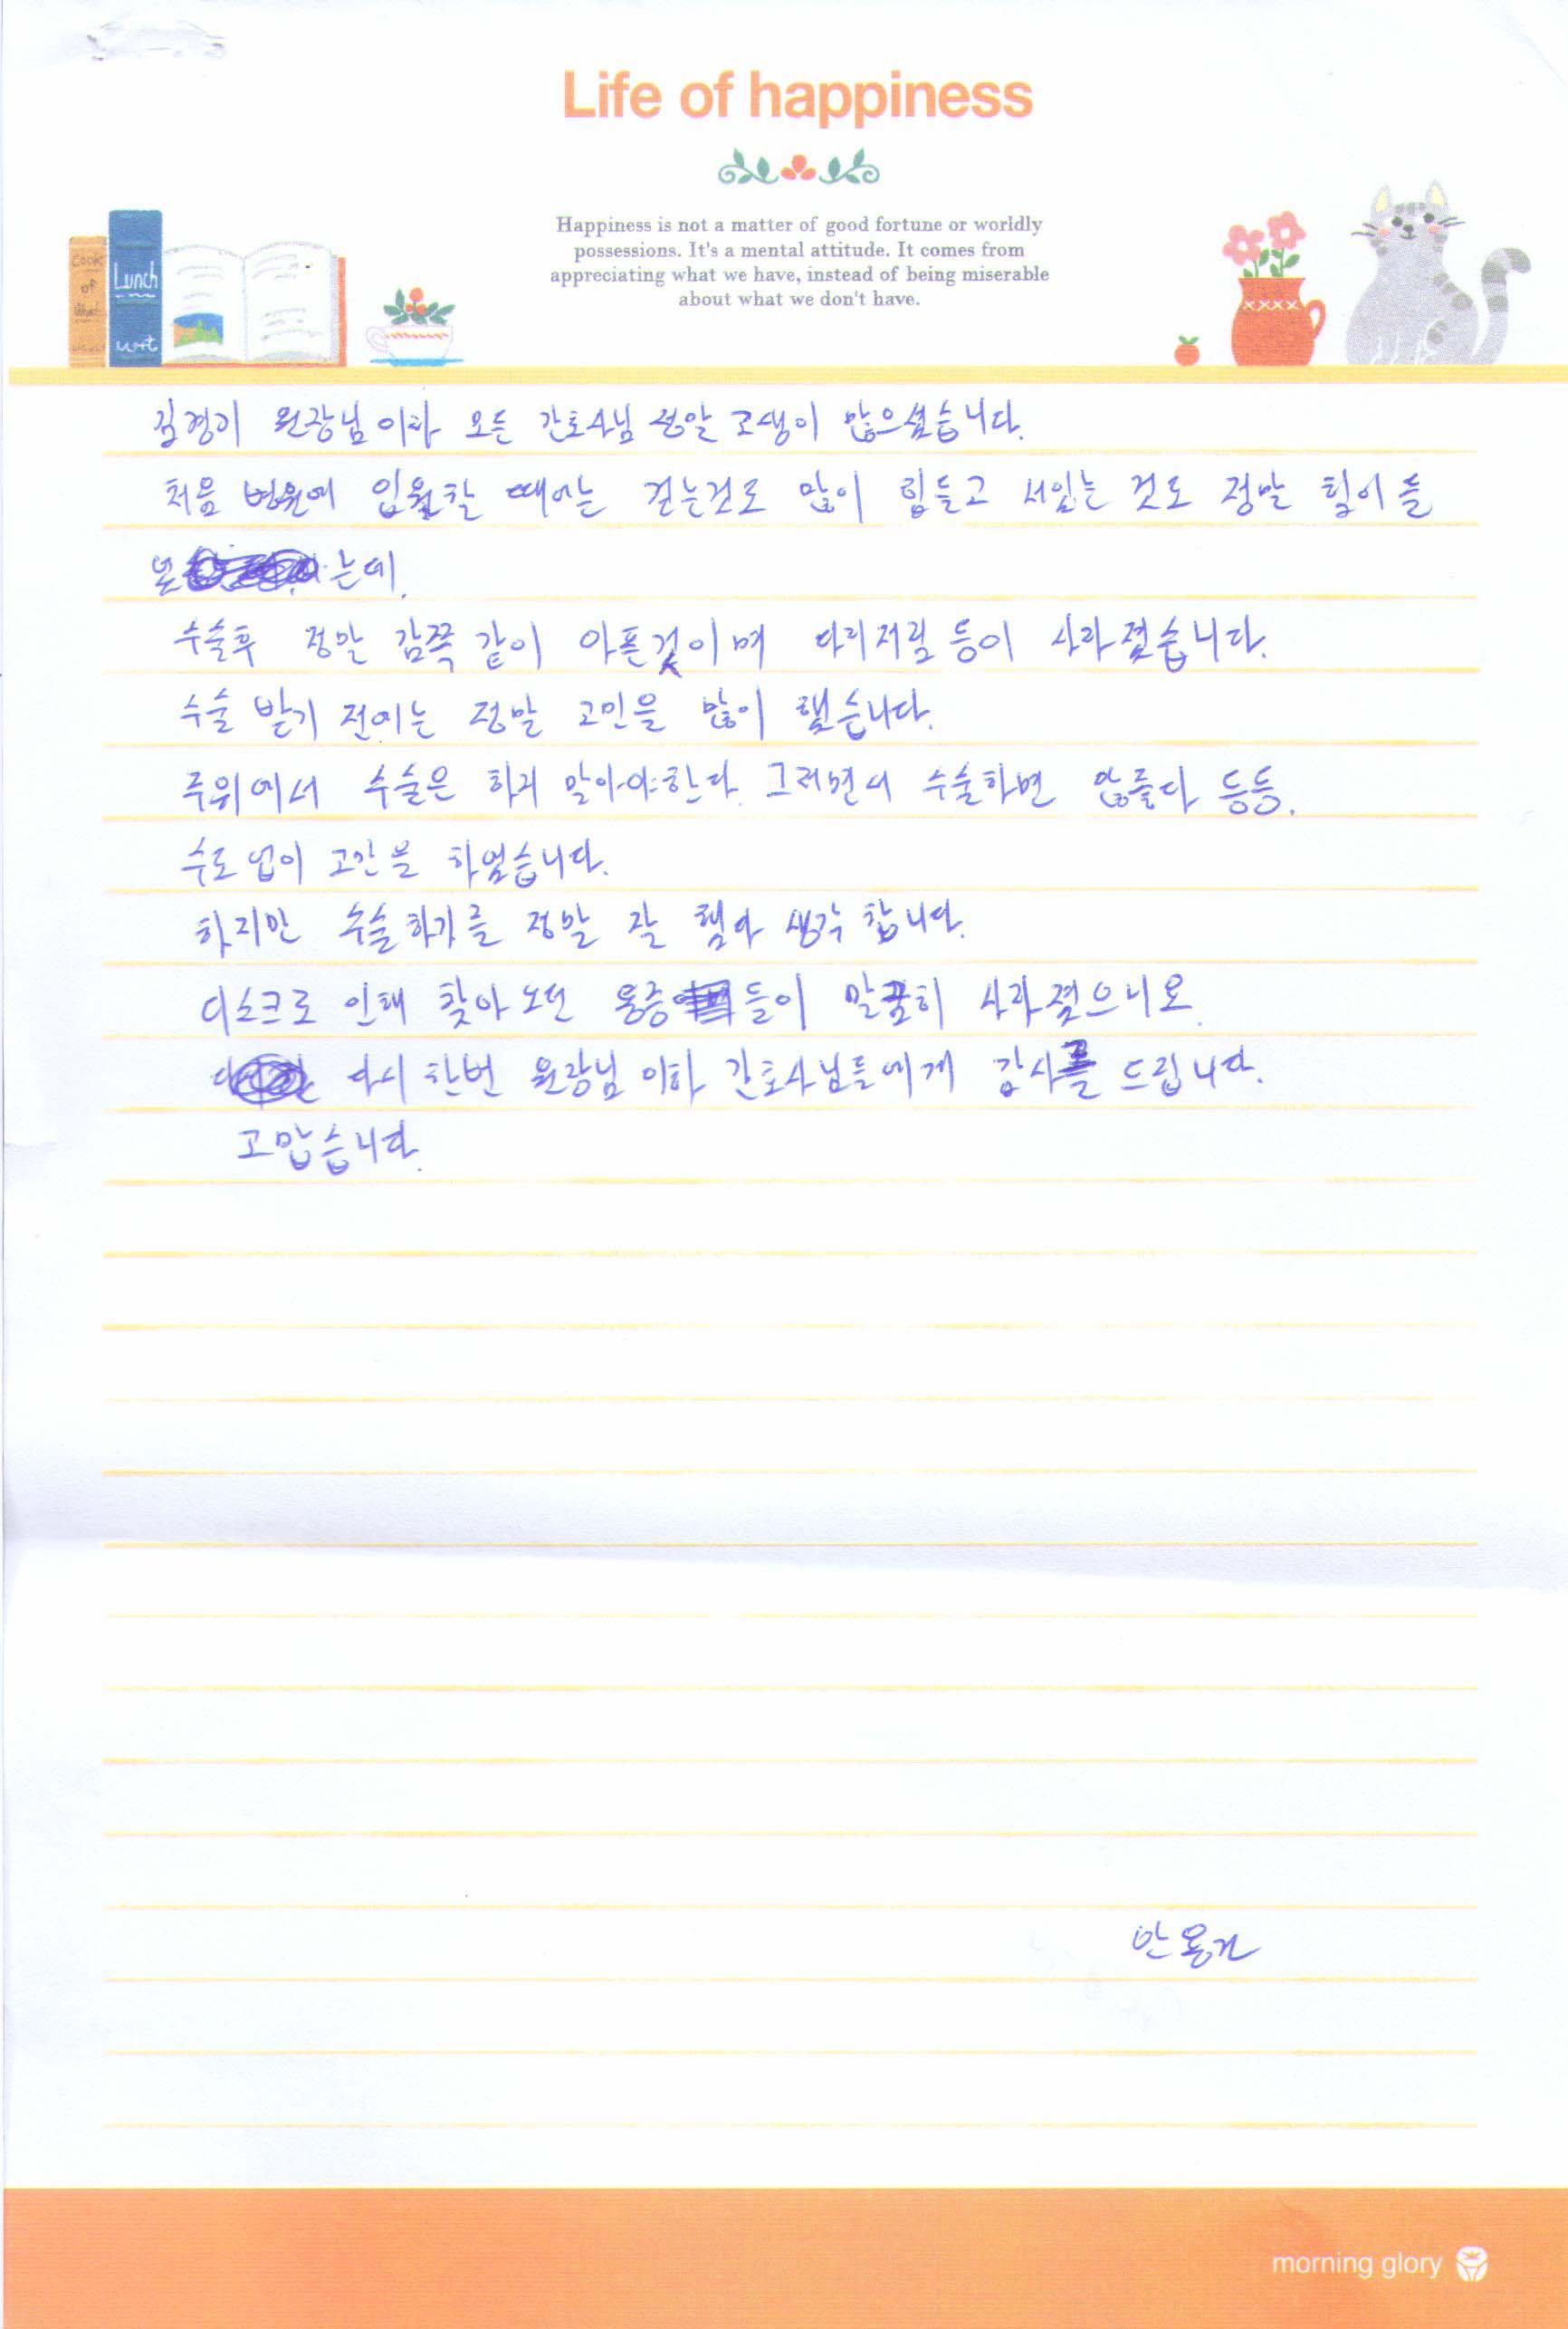 Life of happiness
Happiness is not a matter of good fortune or worldly
possessions. It's a mental attitude. It comes from
appreciating what we have, instead of being miserable
about what we don't have.
COOK
of
What
Lunch
김경기 원장님 이하 모든 간호사님 정말 고생이 많으셨습니다.
처음 병원에 입원할 때에는 걷는것도 많이 힘들고 서있는 것도 정말 힘이 들
는데.
수술후 정말 감쪽 같이 아픈것이며 다리저림 등이 사라졌습니다.
수술 받기 전에는 정말 고민을 많이 했습니다.
주위에서 수술은 하지 말아야한다. 그러면서 수술하면 등등.
수도 없이 고민을 하였습니다.
하지만 수술하기를 정말 잘 했다 생각 합니다.
디스크로 인해 찾아 오던 통증들이 말끔히 사라졌으니요.
다시 한번 원장님 이하 간호사님들에게 감사를 드립니다.
고맙습니다.
morning glory